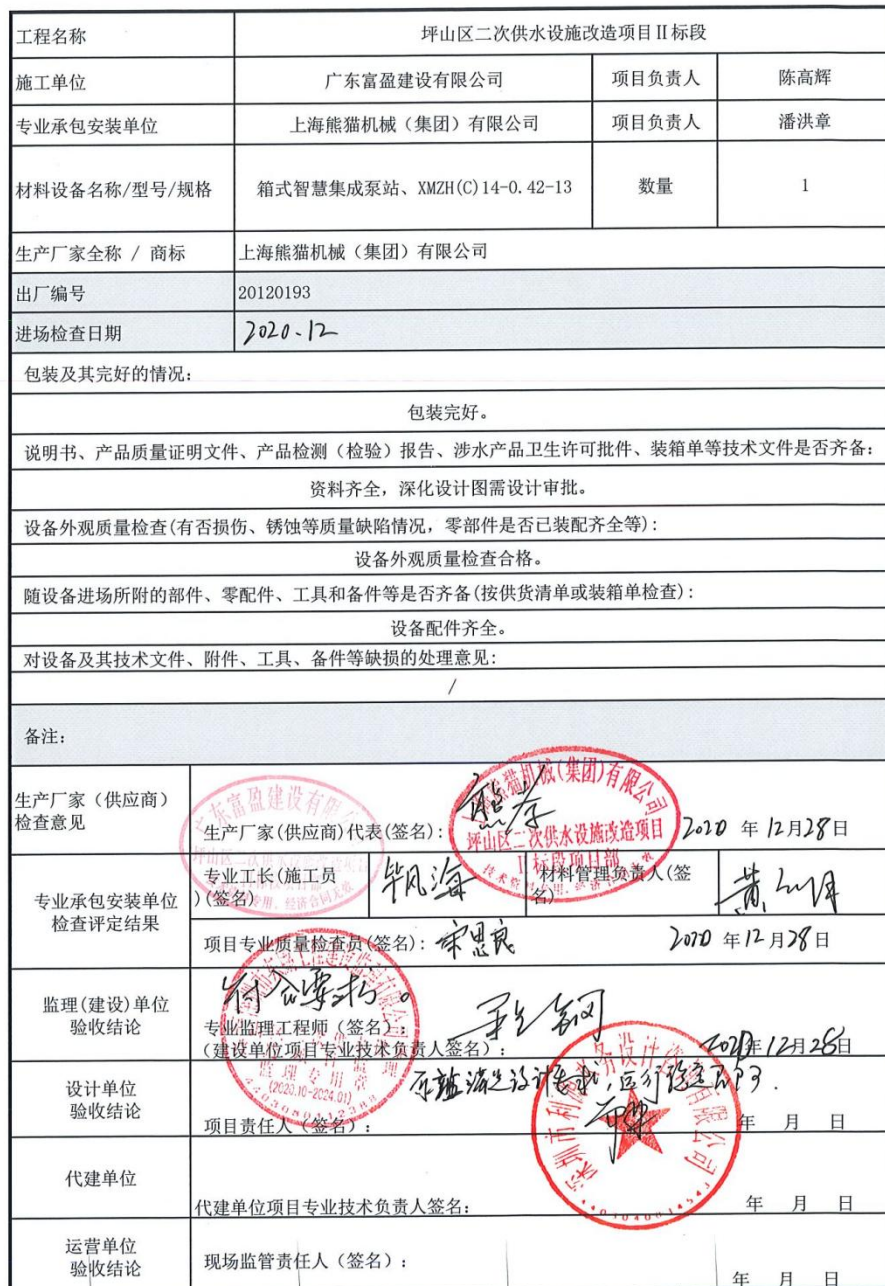 工程名称 坪山区二次供水设施改造项目Ⅱ标段
施工单位 广东富盈建设有限公司 项目负责人 陈高辉
专业承包安装单位 上海熊猫机械（集团）有限公司 项目负责人 潘洪章
材料设备名称/型号/规格 箱式智慧集成泵站、XMZH(C)14-0.42-13 数量 1
生产厂家全称 / 商标 上海熊猫机械（集团）有限公司
出厂编号 20120193
进场检查日期 2020.12
包装及其完好的情况：
包装完好。
说明书、产品质量证明文件、产品检测（检验）报告、涉水产品卫生许可批件、装箱单等技术文件是否齐备：
资料齐全，深化设计图需设计审批。
设备外观质量检查(有否损伤、锈蚀等质量缺陷情况，零部件是否已装配齐全等)：
设备外观质量检查合格。
随设备进场所附的部件、零配件、工具和备件等是否齐备(按供货清单或装箱单检查)：
设备配件齐全。
对设备及其技术文件、附件、工具、备件等缺损的处理意见：
/
备注：
生产厂家（供应商）
检查意见
广东富盈建设有限公
熊猫机械(集团)有限公司
坪山区二次供水设施改造项目
Ⅱ标段项目部
生产厂家(供应商)代表(签名)： 2020 年 12月28日
专业承包安装单位
检查评定结果
专业工长(施工员
)(签名) 毕凤海 材料管理负责人(签
名)
项目专业质量检查员(签名)：宋思良 2020 年12月28日
监理(建设)单位
验收结论
符合要求。
专业监理工程师（签名）：
(建设单位项目专业技术负责人签名)： 2020年12月28日
监理专用章
(2020.10-2024.01)
设计单位
验收结论
项目责任人（签名）： 年 月 日
深圳市利源水务设计咨询有限公司
代建单位
代建单位项目专业技术负责人签名： 年 月 日
运营单位
验收结论
现场监管责任人（签名）： 年 月 日